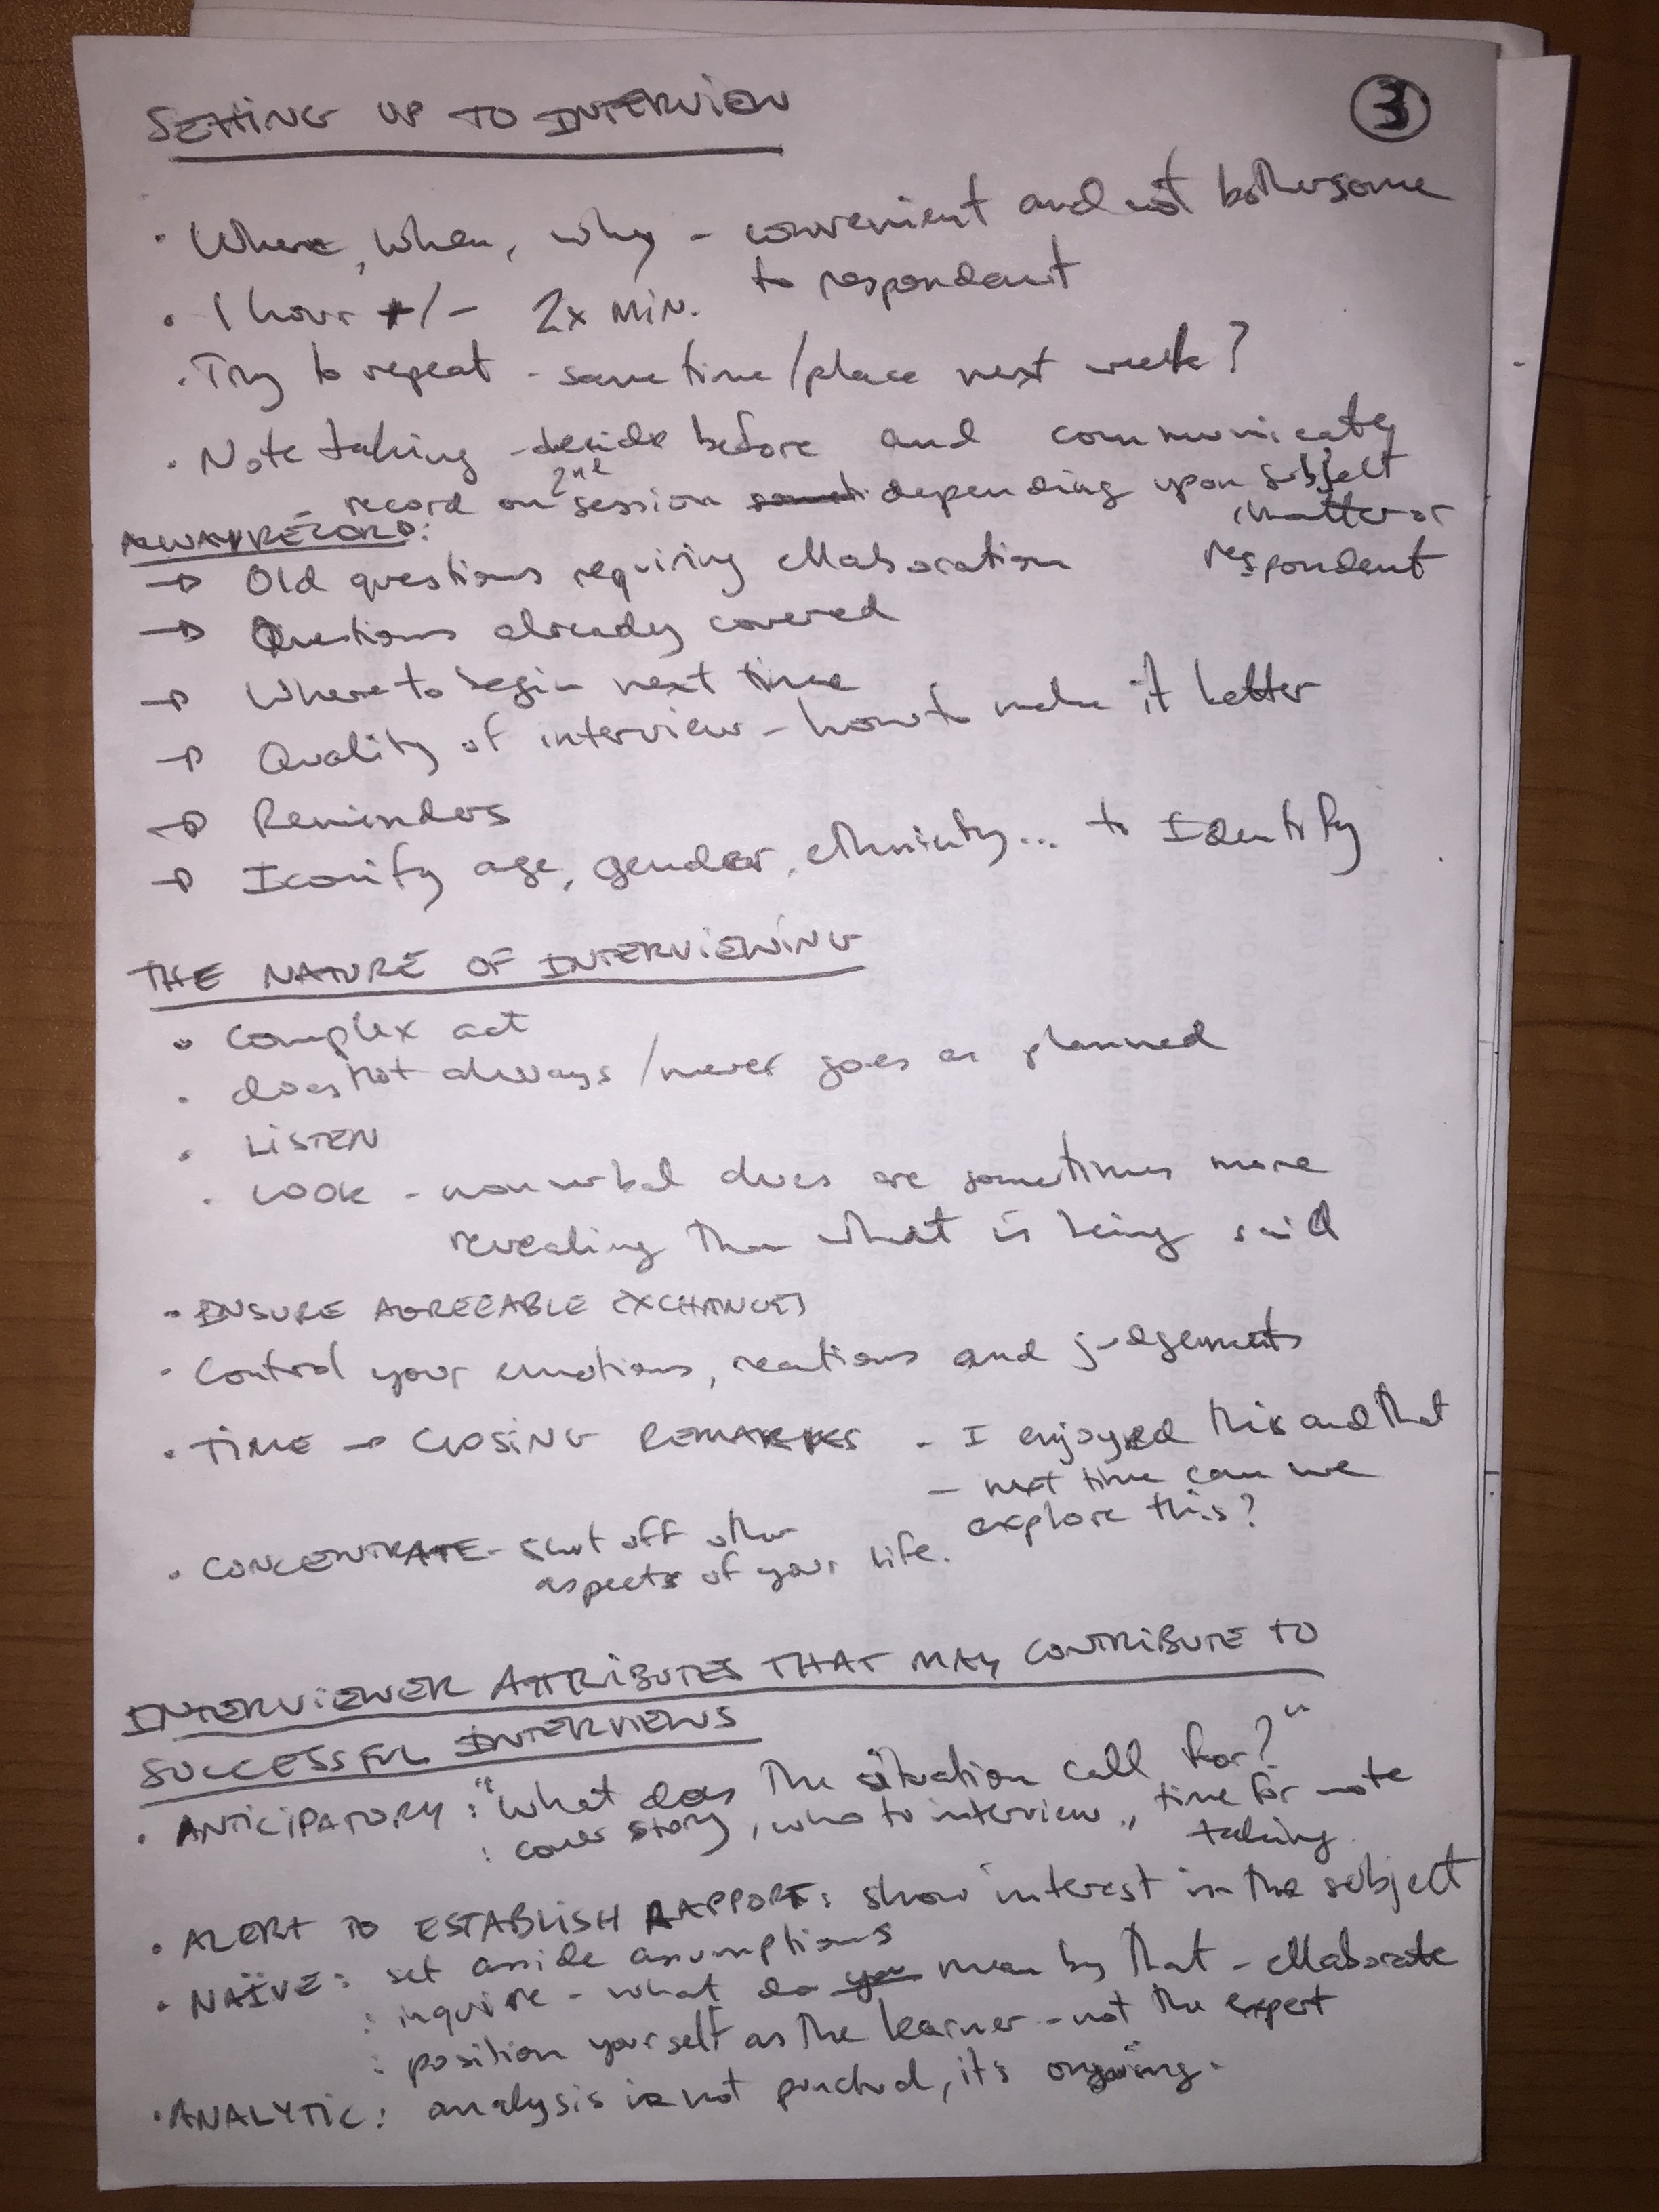 SETTING UP TO INTERVIEW
3
· Where, when, why - convenient and not bothersome
to respondent
· 1 hour +/- 2x MIN.
· Try to repeat - same time/place next week?
· Note taking - decide before and communicate
- record on 2nd session depending upon subject
matter or
respondent
ALWAYS RECORD:
→ Old questions requiring ellaboration
→ Questions already covered
→ Where to begin next time
→ Quality of interview - how to make it better
→ Reminders
→ Iconify age, gender, ethnicity... to Identify
THE NATURE OF INTERVIEWING
· Complex act
· does not always/never goes as planned
· LISTEN
· LOOK - nonverbal clues are sometimes more
revealing than what is being said
· ENSURE AGREEABLE EXCHANGES
· Control your emotions, reactions and judgements
· TIME → CLOSING REMARKS - I enjoyed this and that
- next time can we
explore this?
· CONCENTRATE - shut off other
aspects of your life.
INTERVIEWER ATTRIBUTES THAT MAY CONTRIBUTE TO
SUCCESSFUL INTERVIEWS
· ANTICIPATORY: "What does the situation call for?"
: cover story, who to interview, time for note
taking.
· ALERT TO ESTABLISH RAPPORT: show interest in the subject
· NAÏVE: set aside assumptions
: inquire - what do you mean by that - ellaborate
: position yourself as the learner - not the expert
· ANALYTIC: analysis is not punctual, it's ongoing.